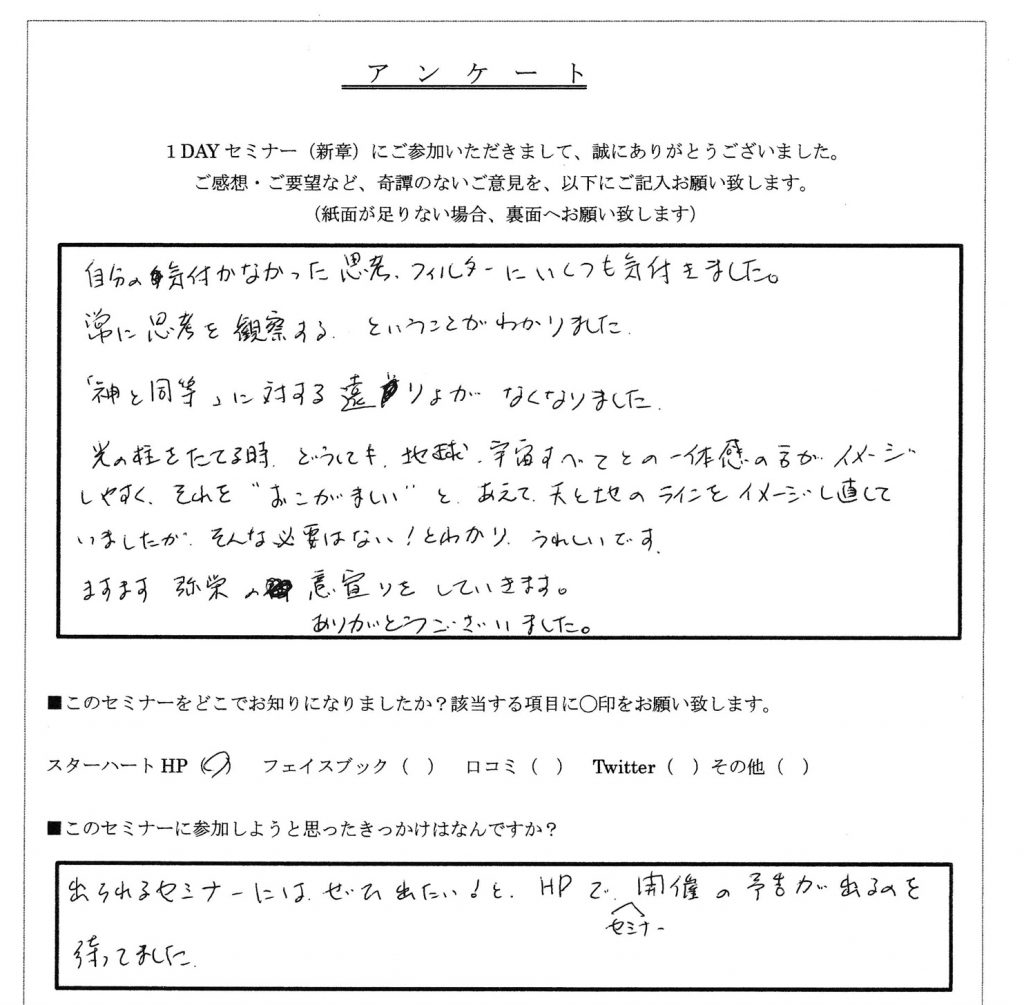 アンケート
1 DAY セミナー（新章）にご参加いただきまして、誠にありがとうございました。
ご感想・ご要望など、奇譚のないご意見を、以下にご記入お願い致します。
（紙面が足りない場合、裏面へお願い致します）
自分の気付かなかった思考、フィルターにいくつも気付きました。
常に思考を観察する、ということがわかりました。
「神と同等」に対する遠りょがなくなりました。
光の柱をたてる時、どうしても、地球、宇宙すべてとの一体感の方がイメージ
しやすく、それを“おこがましい”と、あえて、天と地のラインをイメージし直して
いましたが、そんな必要はない！とわかり、うれしいです。
ますます弥栄の意宣りをしていきます。
ありがとうございました。
■このセミナーをどこでお知りになりましたか？該当する項目に〇印をお願い致します。
スターハート HP（〇） フェイスブック（ ） 口コミ（ ） Twitter（ ）その他（ ）
■このセミナーに参加しようと思ったきっかけはなんですか？
出られるセミナーには、ぜひ出たい！と、HPで、開催の予告が出るのを
セミナー
待ってました。